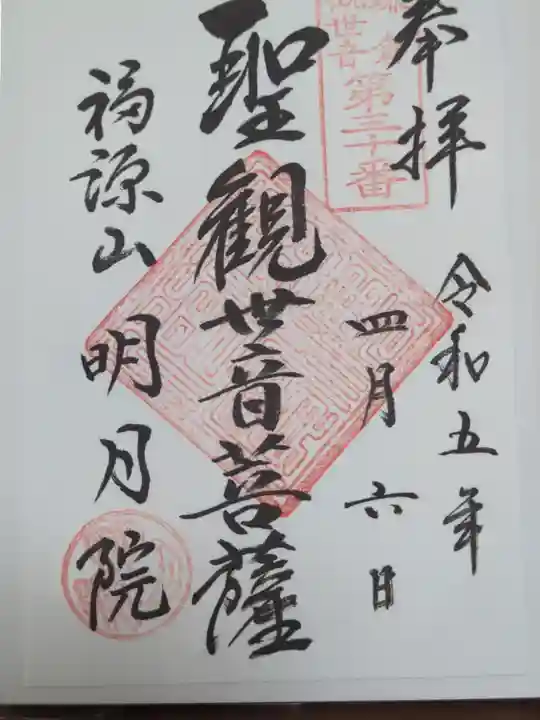 奉拝
令和五年
四月六日
観世音
第三十番
聖観世音菩薩
福源山
明月院